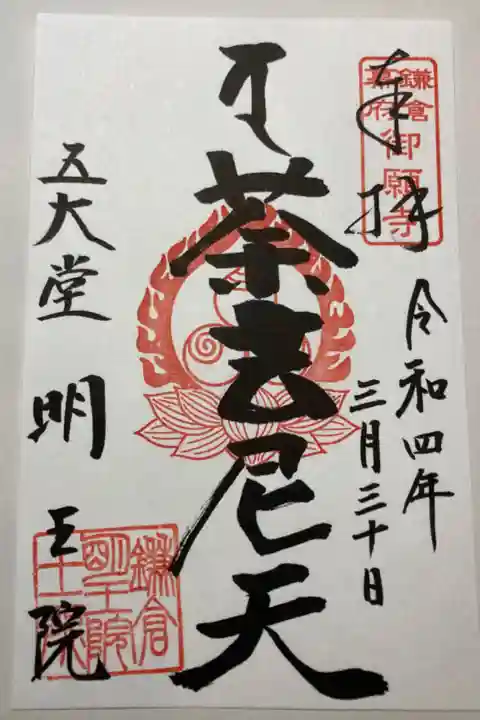 奉拝
鎌倉
幕府
御願寺
令和四年
三月三十日
荼吉尼天
五大堂
明王院
鎌倉
明王院